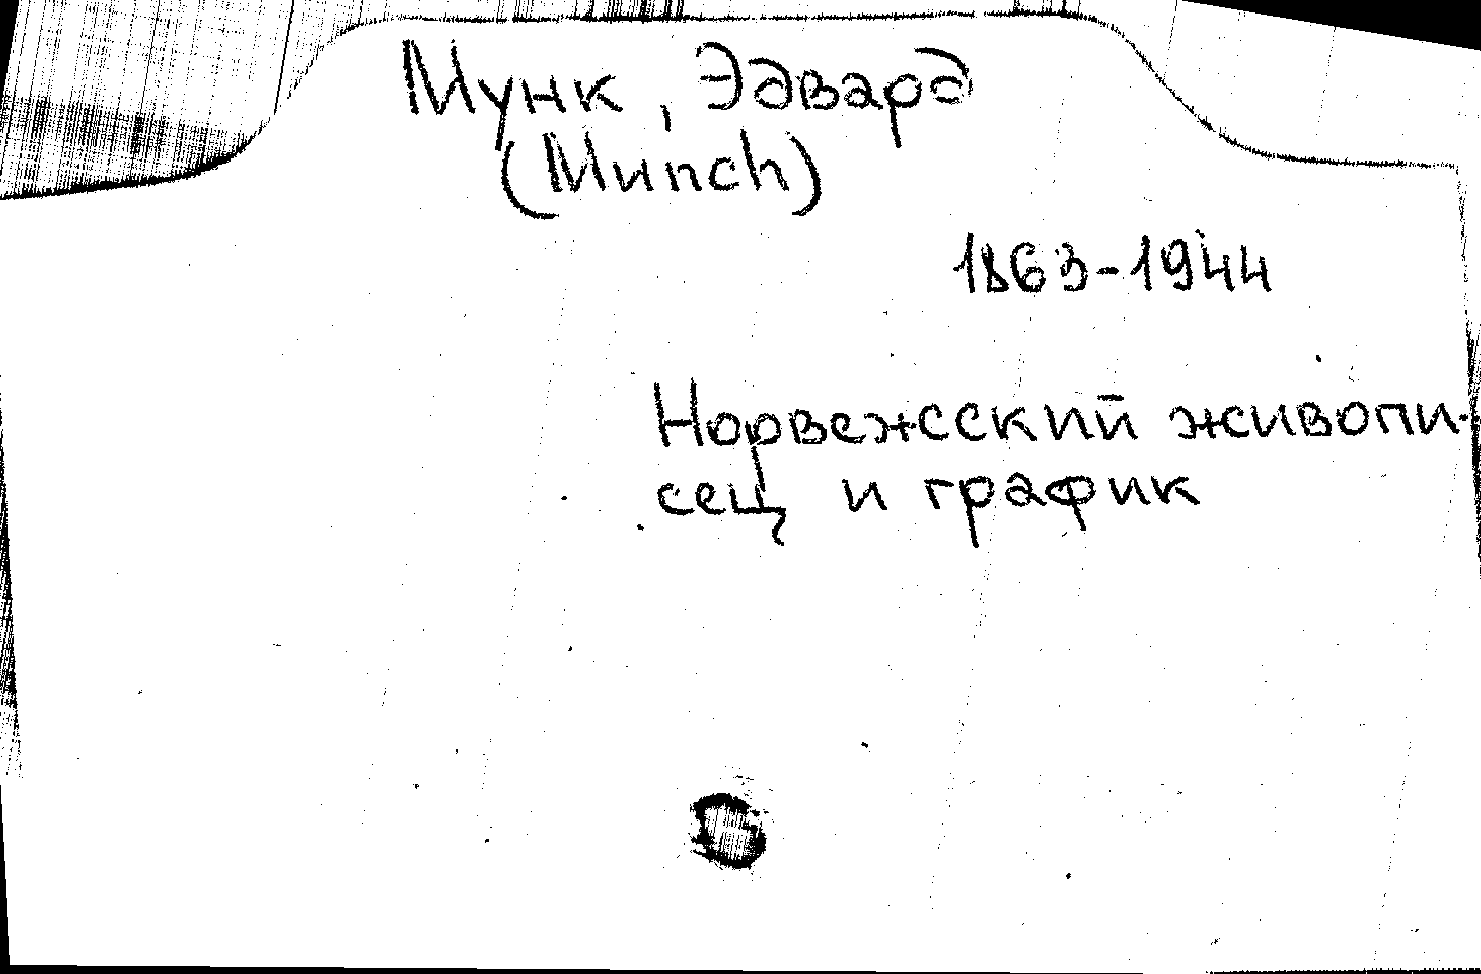 Мунк, Эдвард
(Munch)
1863-1944
Норвежсский живопи-
сец и график